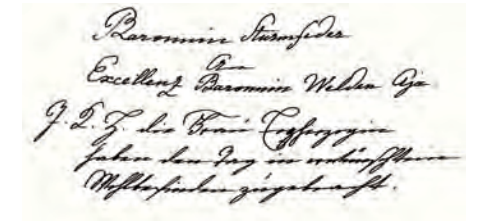 Baronnin Sturmfeder
An
Excellenz Baronnin Welden Aja
J. K. H. die Frau Erzherzogin
haben den Tag in erwünschtem
Wohlbefinden zugebracht.